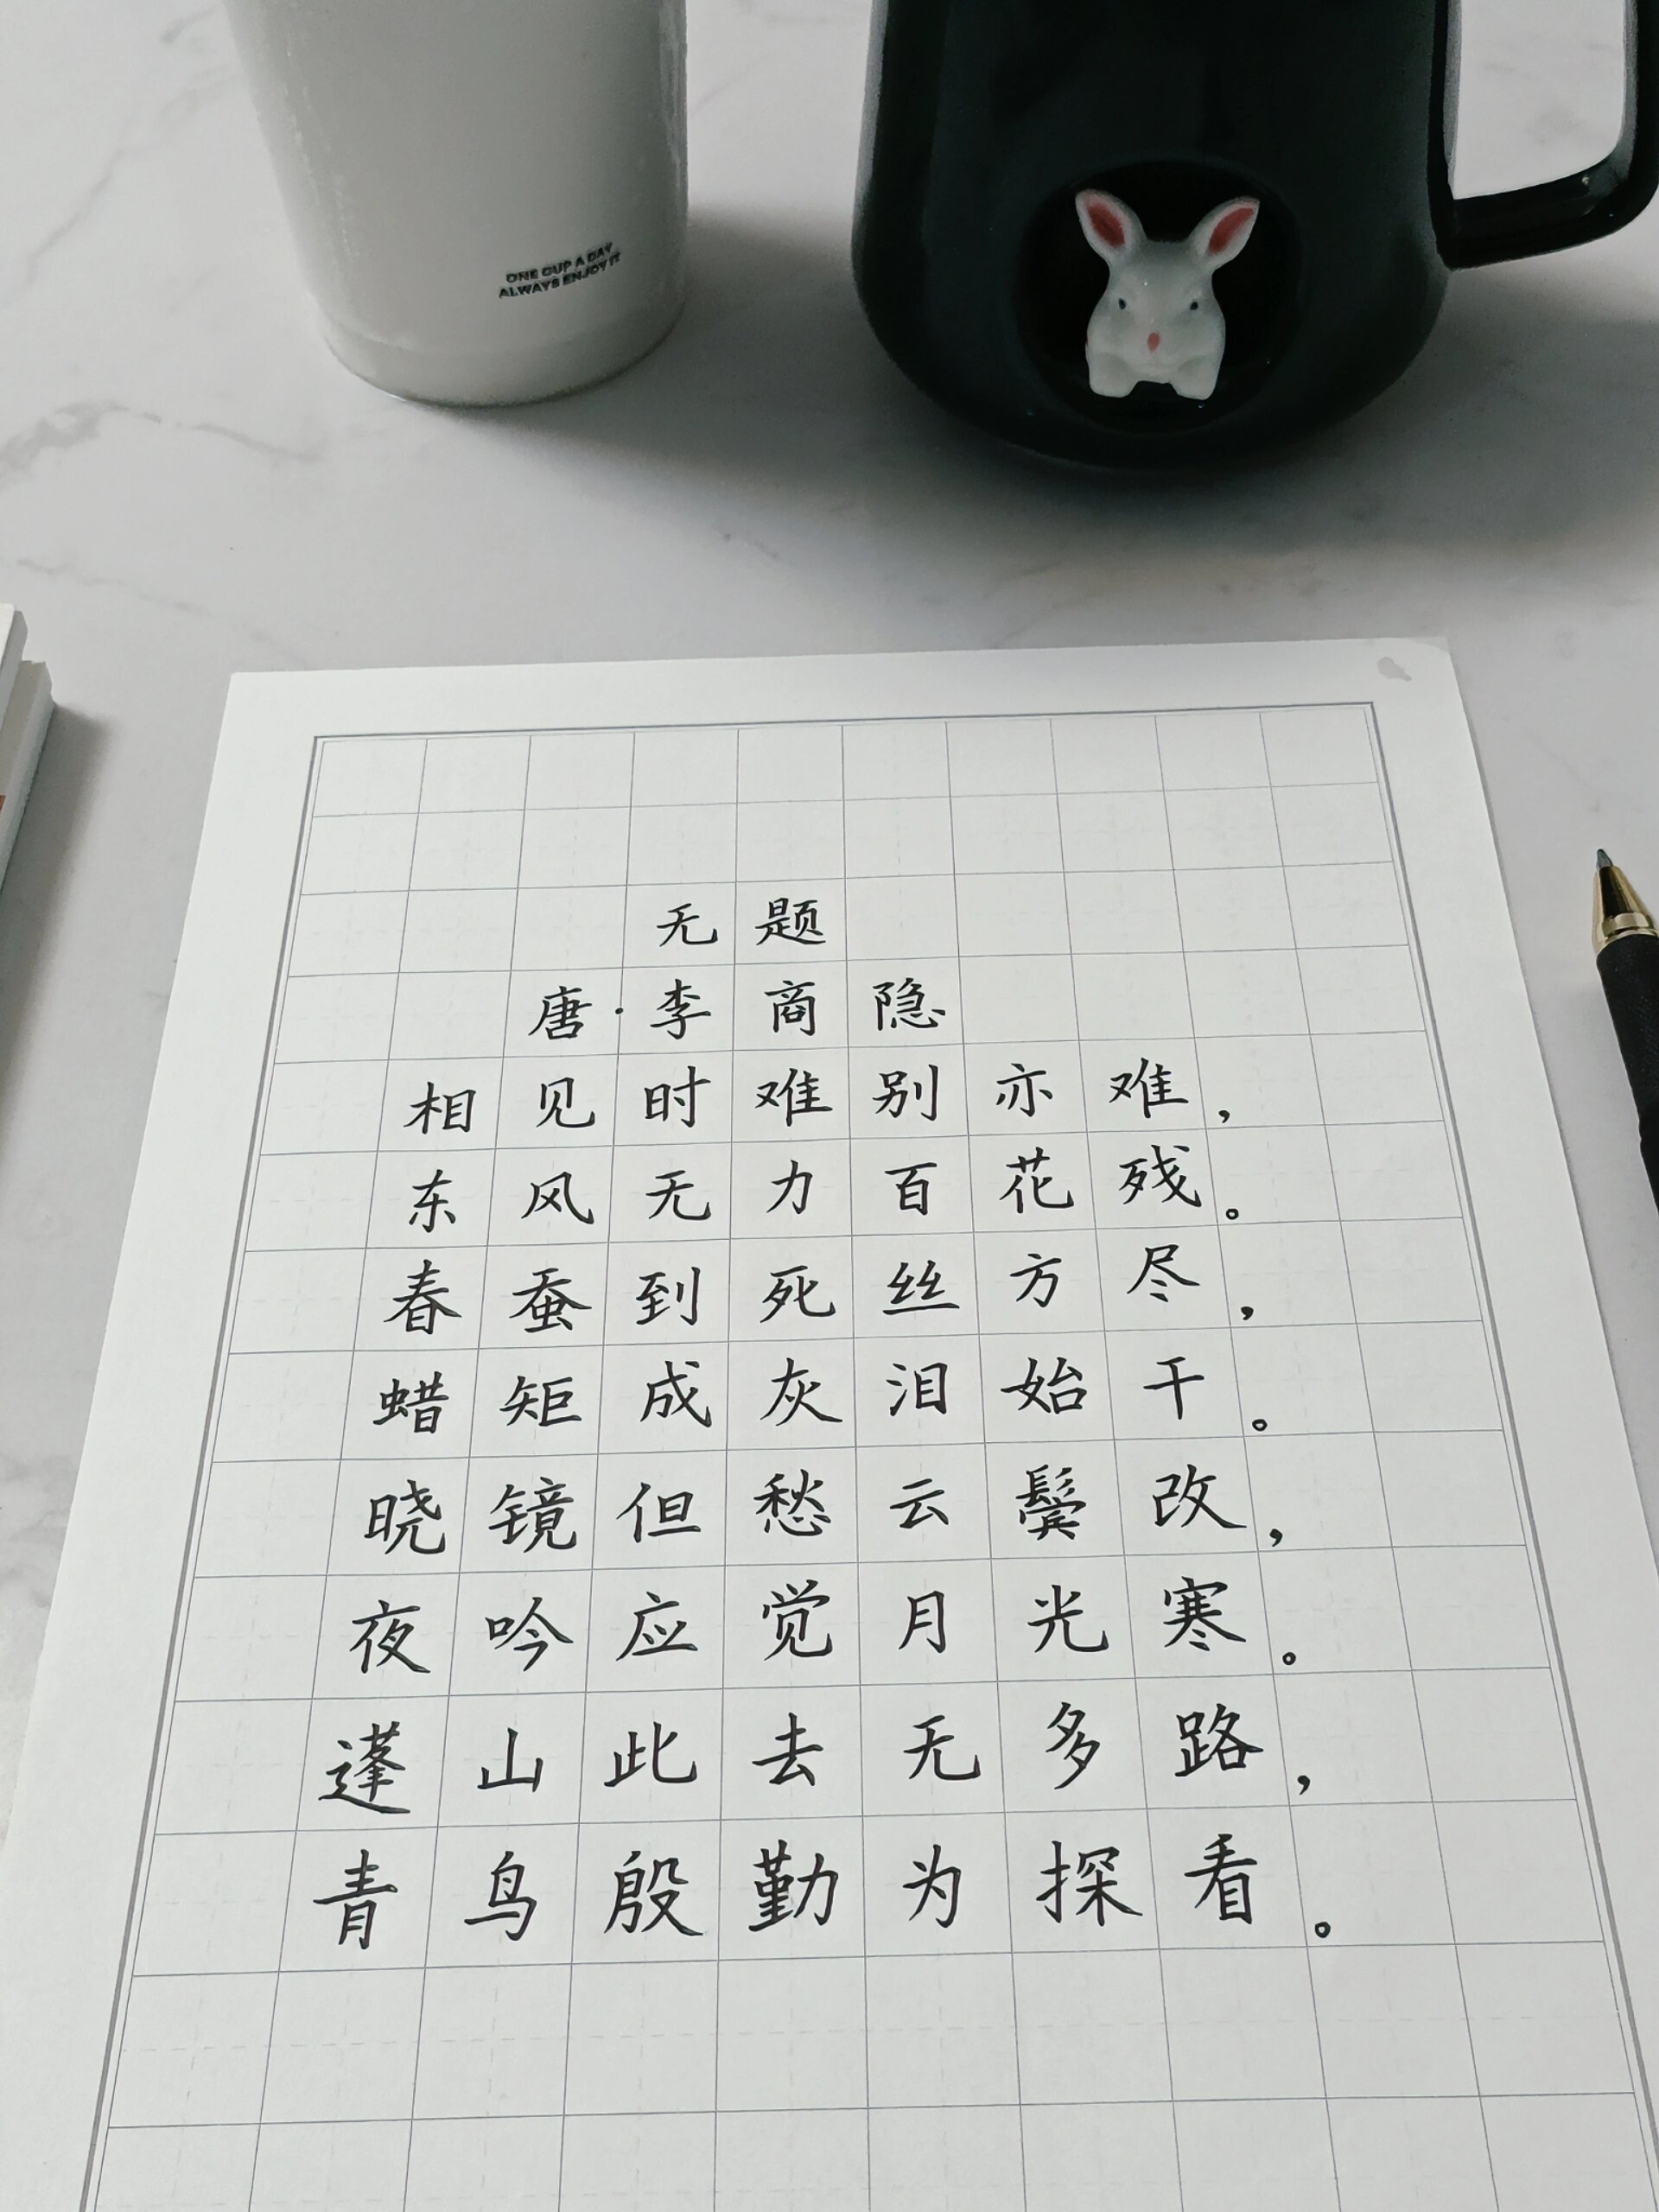 ONE CUP A DAY
ALWAYS ENJOY IT
无题
唐·李商隐
相见时难别亦难，
东风无力百花残。
春蚕到死丝方尽，
蜡矩成灰泪始干。
晓镜但愁云鬓改，
夜吟应觉月光寒。
蓬山此去无多路，
青鸟殷勤为探看。